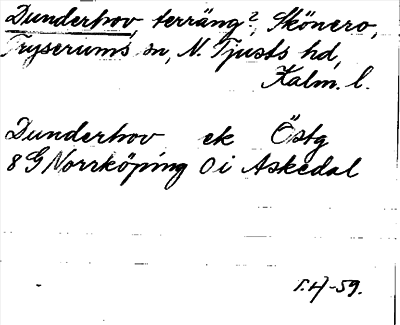 Dunderhov, terräng?, Skönero,
Tryserums sn, N. Tjusts hd,
Kalm. l.
Dunderhov ek Östg
8 G Norrköping O i Askedal
T.H-59.